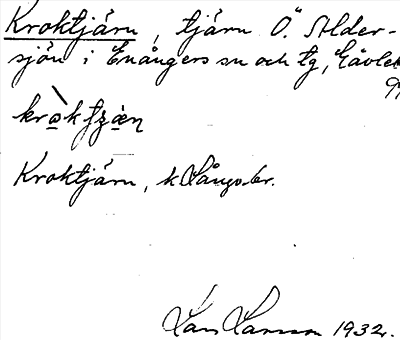 Kroktjärn, tjärn Ö. Alder-
sjön i Enångers sn och tg, Gävleb
krokʃʒæn
Kroktjärn, k Långs br.
Lars Larsson 1932.